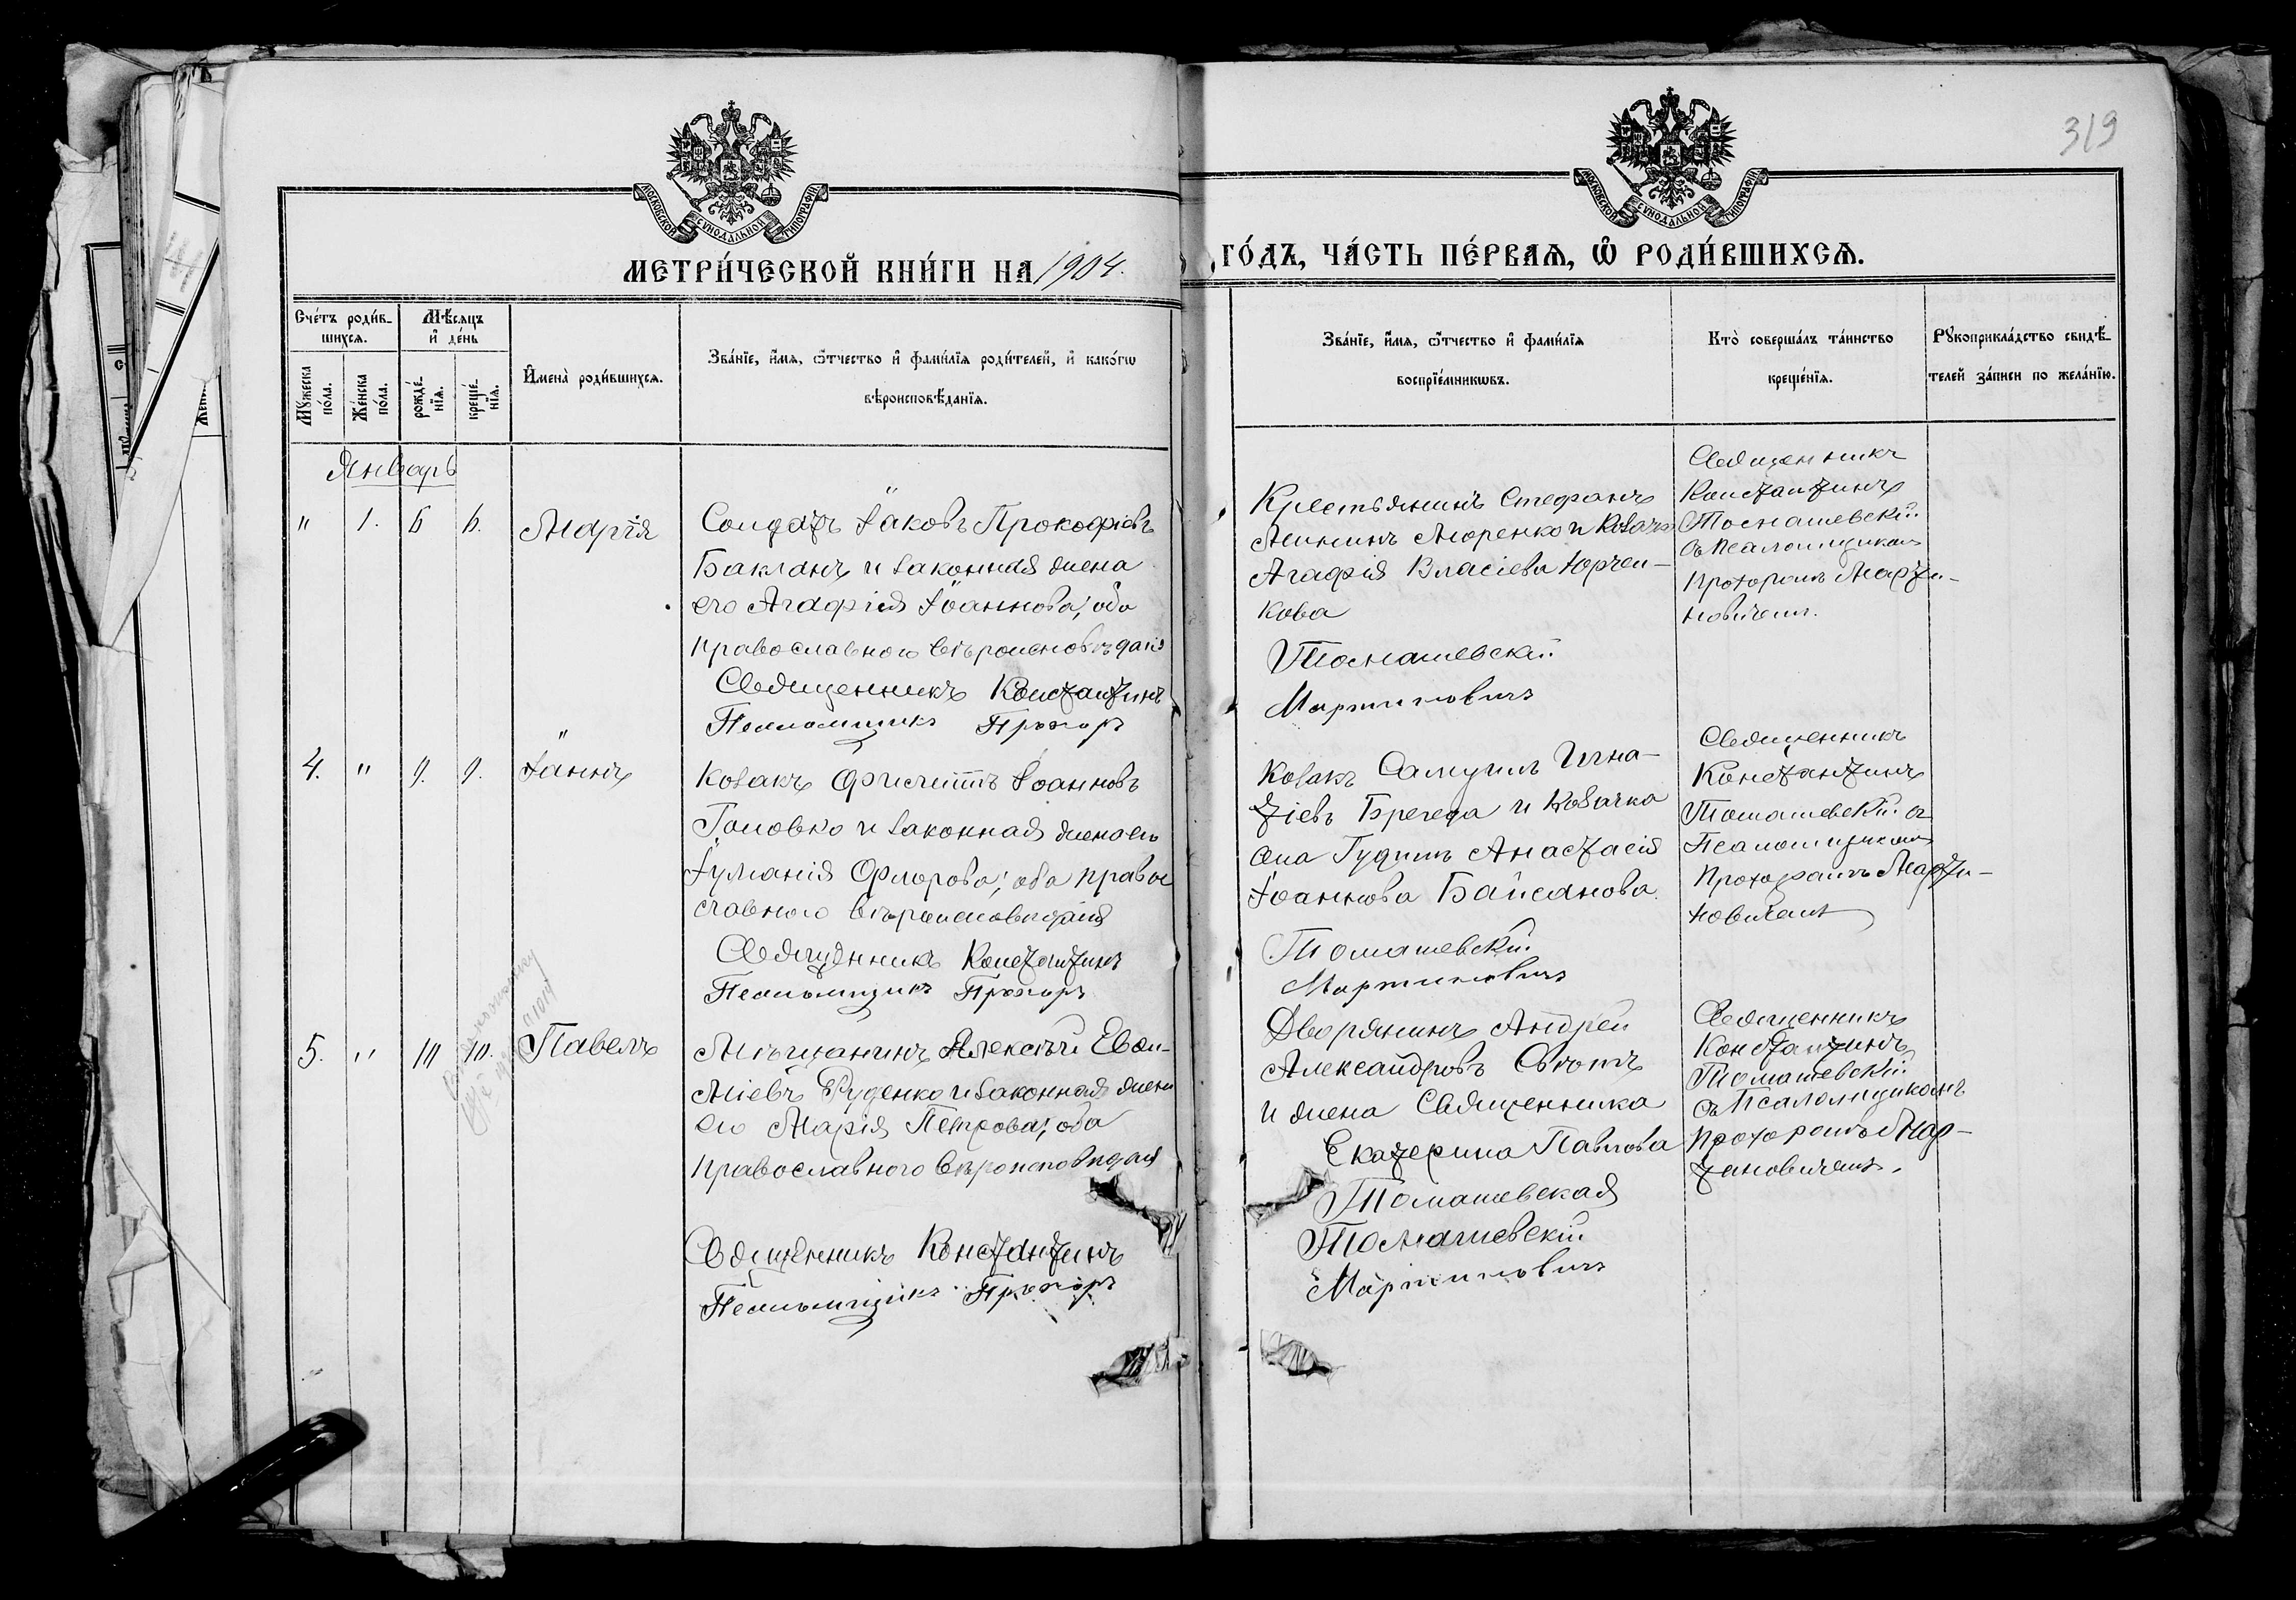 319
МОСКОВСКОЙ СѴНОДАЛЬНОЙ ТИПОГРАФІИ
МОСКОВСКОЙ СѴНОДАЛЬНОЙ ТИПОГРАФІИ
МЕТРИ́ЧЕСКОЙ КНИ́ГИ НА 1904.
ГО́ДЪ, ЧА́СТЬ ПЕ́РВАѦ, Ѿ РОДИ́ВШИХСѦ.
Сче́тъ роди́в-
шихсѧ.
Мѣ́сѧцъ
и҆ де́нь
Мꙋ́жеска
по́ла.
Же́нска
по́ла.
рожде́-
нїѧ.
креще́-
нїѧ.
И҆мена̀ роди́вшихсѧ.
Зва́нїе, и҆́мѧ, ѻ҆́тчество и҆ фами́лїѧ роди́телей, и҆ како́гѡ
вѣроисповѣ́данїѧ.
Зва́нїе, и҆́мѧ, ѻ҆́тчество и҆ фами́лїѧ
воспрїе́мникѡвъ.
Кто̀ соверша́лъ та́инство
креще́нїѧ.
Рꙋкоприкла́дство свидѣ́-
телей за́писи по жела́нїю.
Январь
" 1. 6 6. Марія
Солдатъ Іаковъ Прокофіевъ
Бакланъ и законная жена
его Агафія Іоаннова, оба
православного вѣроисповѣданія
Священникъ Константинъ
Псаломщикъ Прохоръ
Крестьянинъ Стефанъ
Мининъ Моренко и Козачка
Агафія Власіева Юрчен-
кова
Томашевскій
Мартиновичъ
Священникъ
Константинъ
Томашевскій
съ Псаломщикомъ
Прохоромъ Марти-
новичемъ.
4. " 9. 9. Іаннъ
Козакъ Филиппъ Іоанновъ
Головко и законная жена его
Іуліанія Флорова; оба право
славного вѣроисповѣданія
Священникъ Константинъ
Псаломщикъ Прохоръ
Козакъ Самуилъ Игна-
тіевъ Брегеда и Козачка
села Гудимъ Анастасія
Іоаннова Байсанова
Томашевскій
Мартиновичъ
Священникъ
Константинъ
Томашевскій съ
Псаломщикомъ
Прохоромъ Марти-
новичемъ
5. " 10 10. Павелъ
Мѣщанинъ Алексѣй Евѳи-
міевъ Руденко и законная жена
его Марія Петрова, оба
Православного вѣроисповѣданія
Священникъ Константинъ
Псаломщикъ Прохоръ
Дворянинъ Андрей
Александровъ
и жена Священника
Екатерина Павлова
Томашевская
Томашевскій
Мартиновичъ
Священникъ
Константинъ
Томашевскій
съ Псаломщикомъ
Прохоромъ Мар-
тиновичемъ.